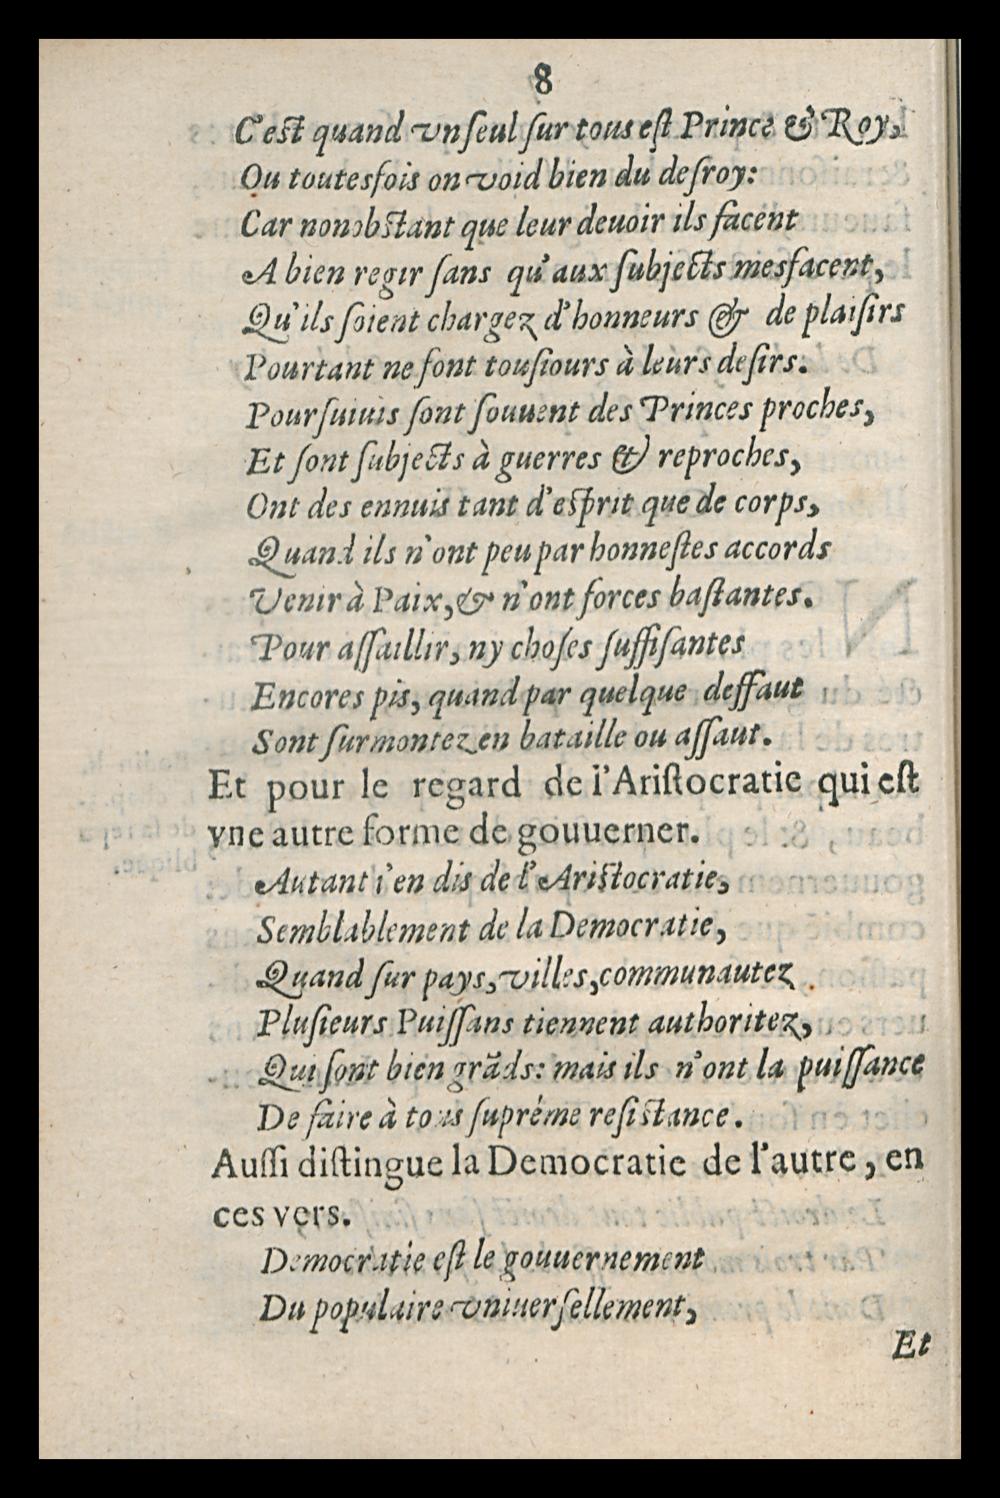 8
C'est quand vn seul sur tous est Prince & Roy,
Ou toutesfois on void bien du desroy:
Car nonobstant que leur deuoir ils facent
A bien regir sans qu'aux subjects mesfacent,
Qu'ils soient chargez d'honneurs & de plaisirs
Pourtant ne sont tousiours à leurs desirs.
Poursuiuis sont souuent des Princes proches,
Et sont subjects à guerres & reproches,
Ont des ennuis tant d'esprit que de corps,
Quand ils n'ont peu par honnestes accords
Venir à Paix, & n'ont forces bastantes.
Pour assaillir, ny choses suffisantes
Encores pis, quand par quelque deffaut
Sont surmontez en bataille ou assaut.
Et pour le regard de l'Aristocratie qui est
vne autre forme de gouuerner.
Autant i'en dis de l'Aristocratie,
Semblablement de la Democratie,
Quand sur pays, villes, communautez
Plusieurs Puissans tiennent authoritez,
Qui sont bien grāds: mais ils n'ont la puissance
De faire à tous supréme resistance.
Aussi distingue la Democratie de l'autre, en
ces vers.
Democratie est le gouuernement
Du populaire vniuersellement,
Et